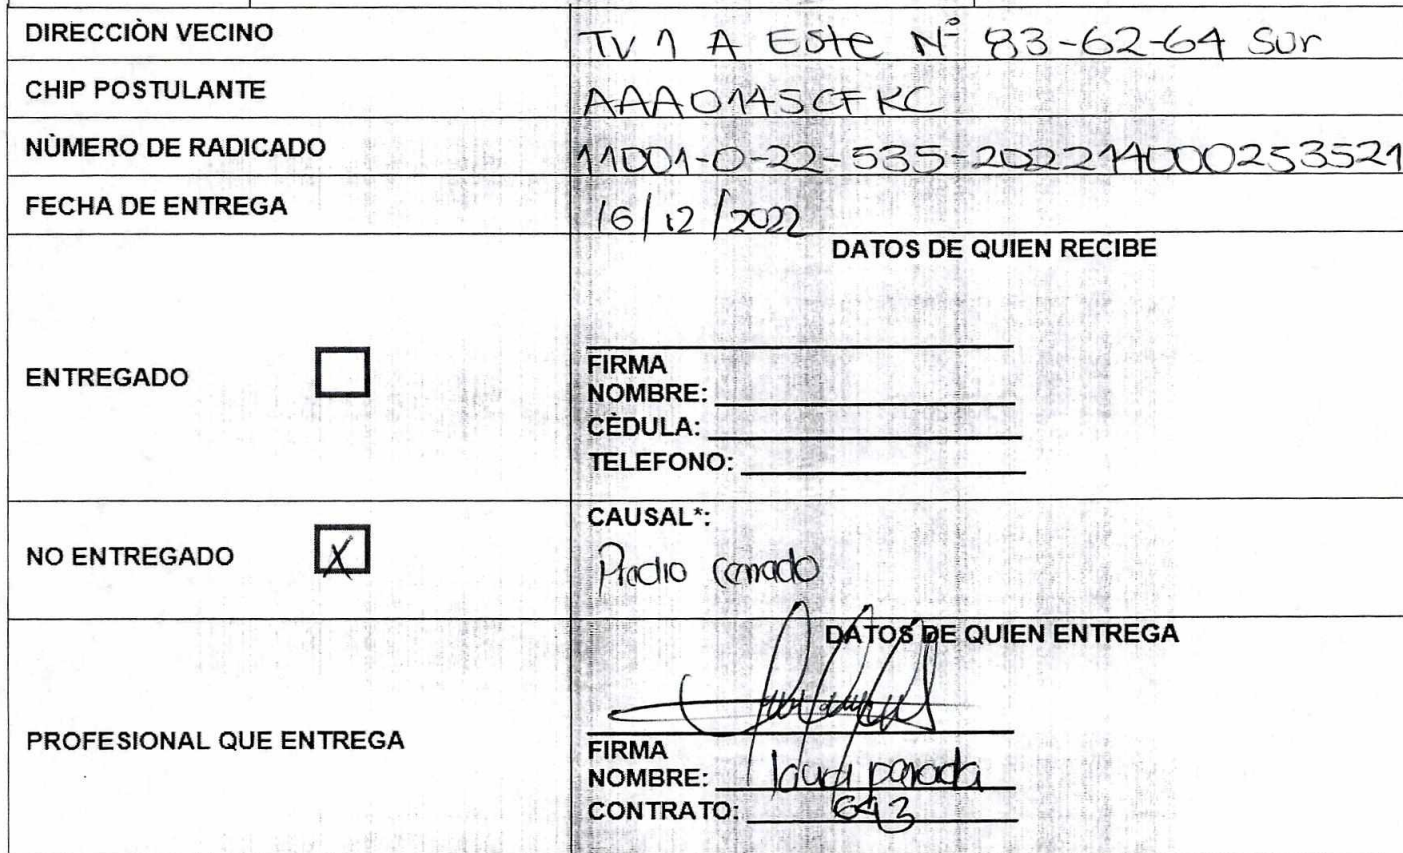 DIRECCIÒN VECINO TV 1 A Este N° 83-62-64 Sur
CHIP POSTULANTE AAA0145CFKC
NÙMERO DE RADICADO 11001-0-22-535-20221140000253521
FECHA DE ENTREGA 16/12/2022
DATOS DE QUIEN RECIBE
ENTREGADO
FIRMA
NOMBRE:
CÈDULA:
TELEFONO:
NO ENTREGADO X
CAUSAL*:
Predio cerrado
DATOS DE QUIEN ENTREGA
PROFESIONAL QUE ENTREGA
FIRMA
NOMBRE: laura parada
CONTRATO: 643